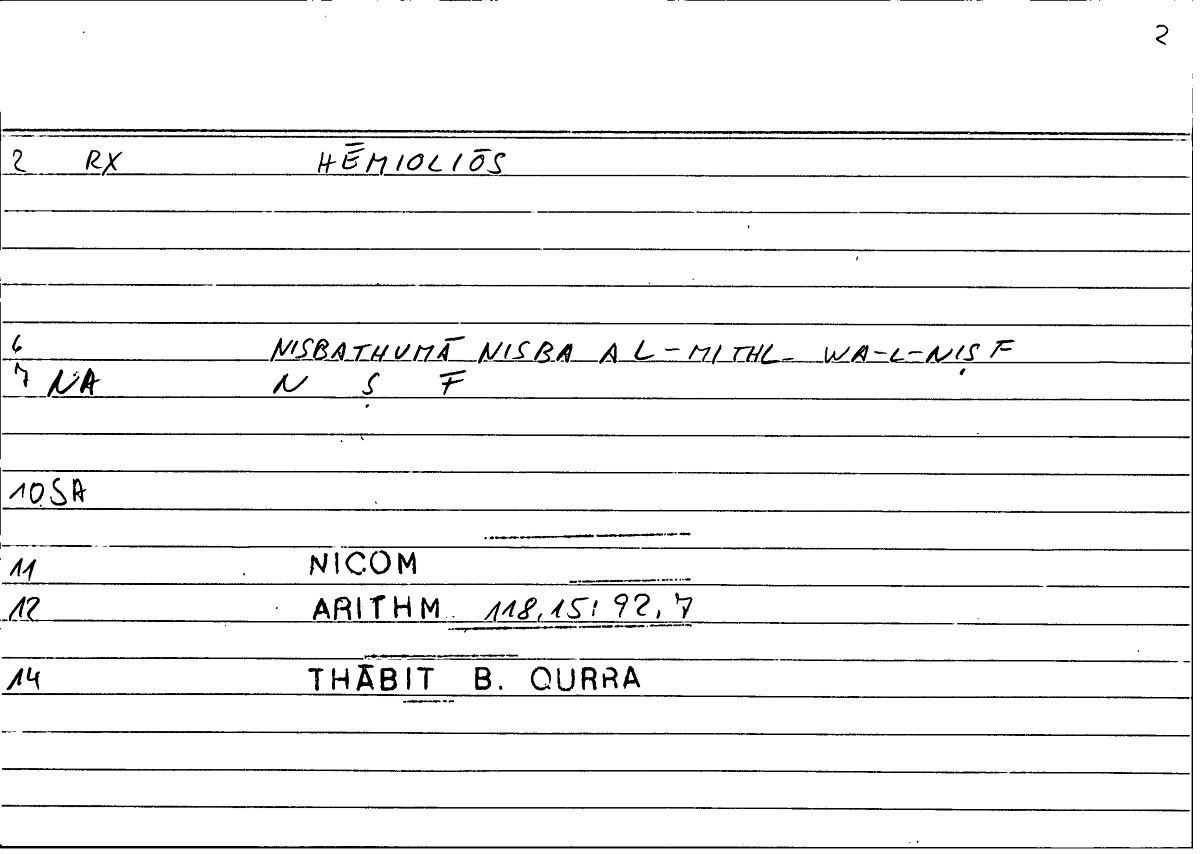 2
2 RX HĒMIOLIŌS
6 NISBATHUMĀ NISBA AL-MITHL WA-L-NIṢF
7 NA N Ṣ F
10 SA
11 NICOM
12 ARITHM 118,15: 92,7
14 THĀBIT B. QURRA